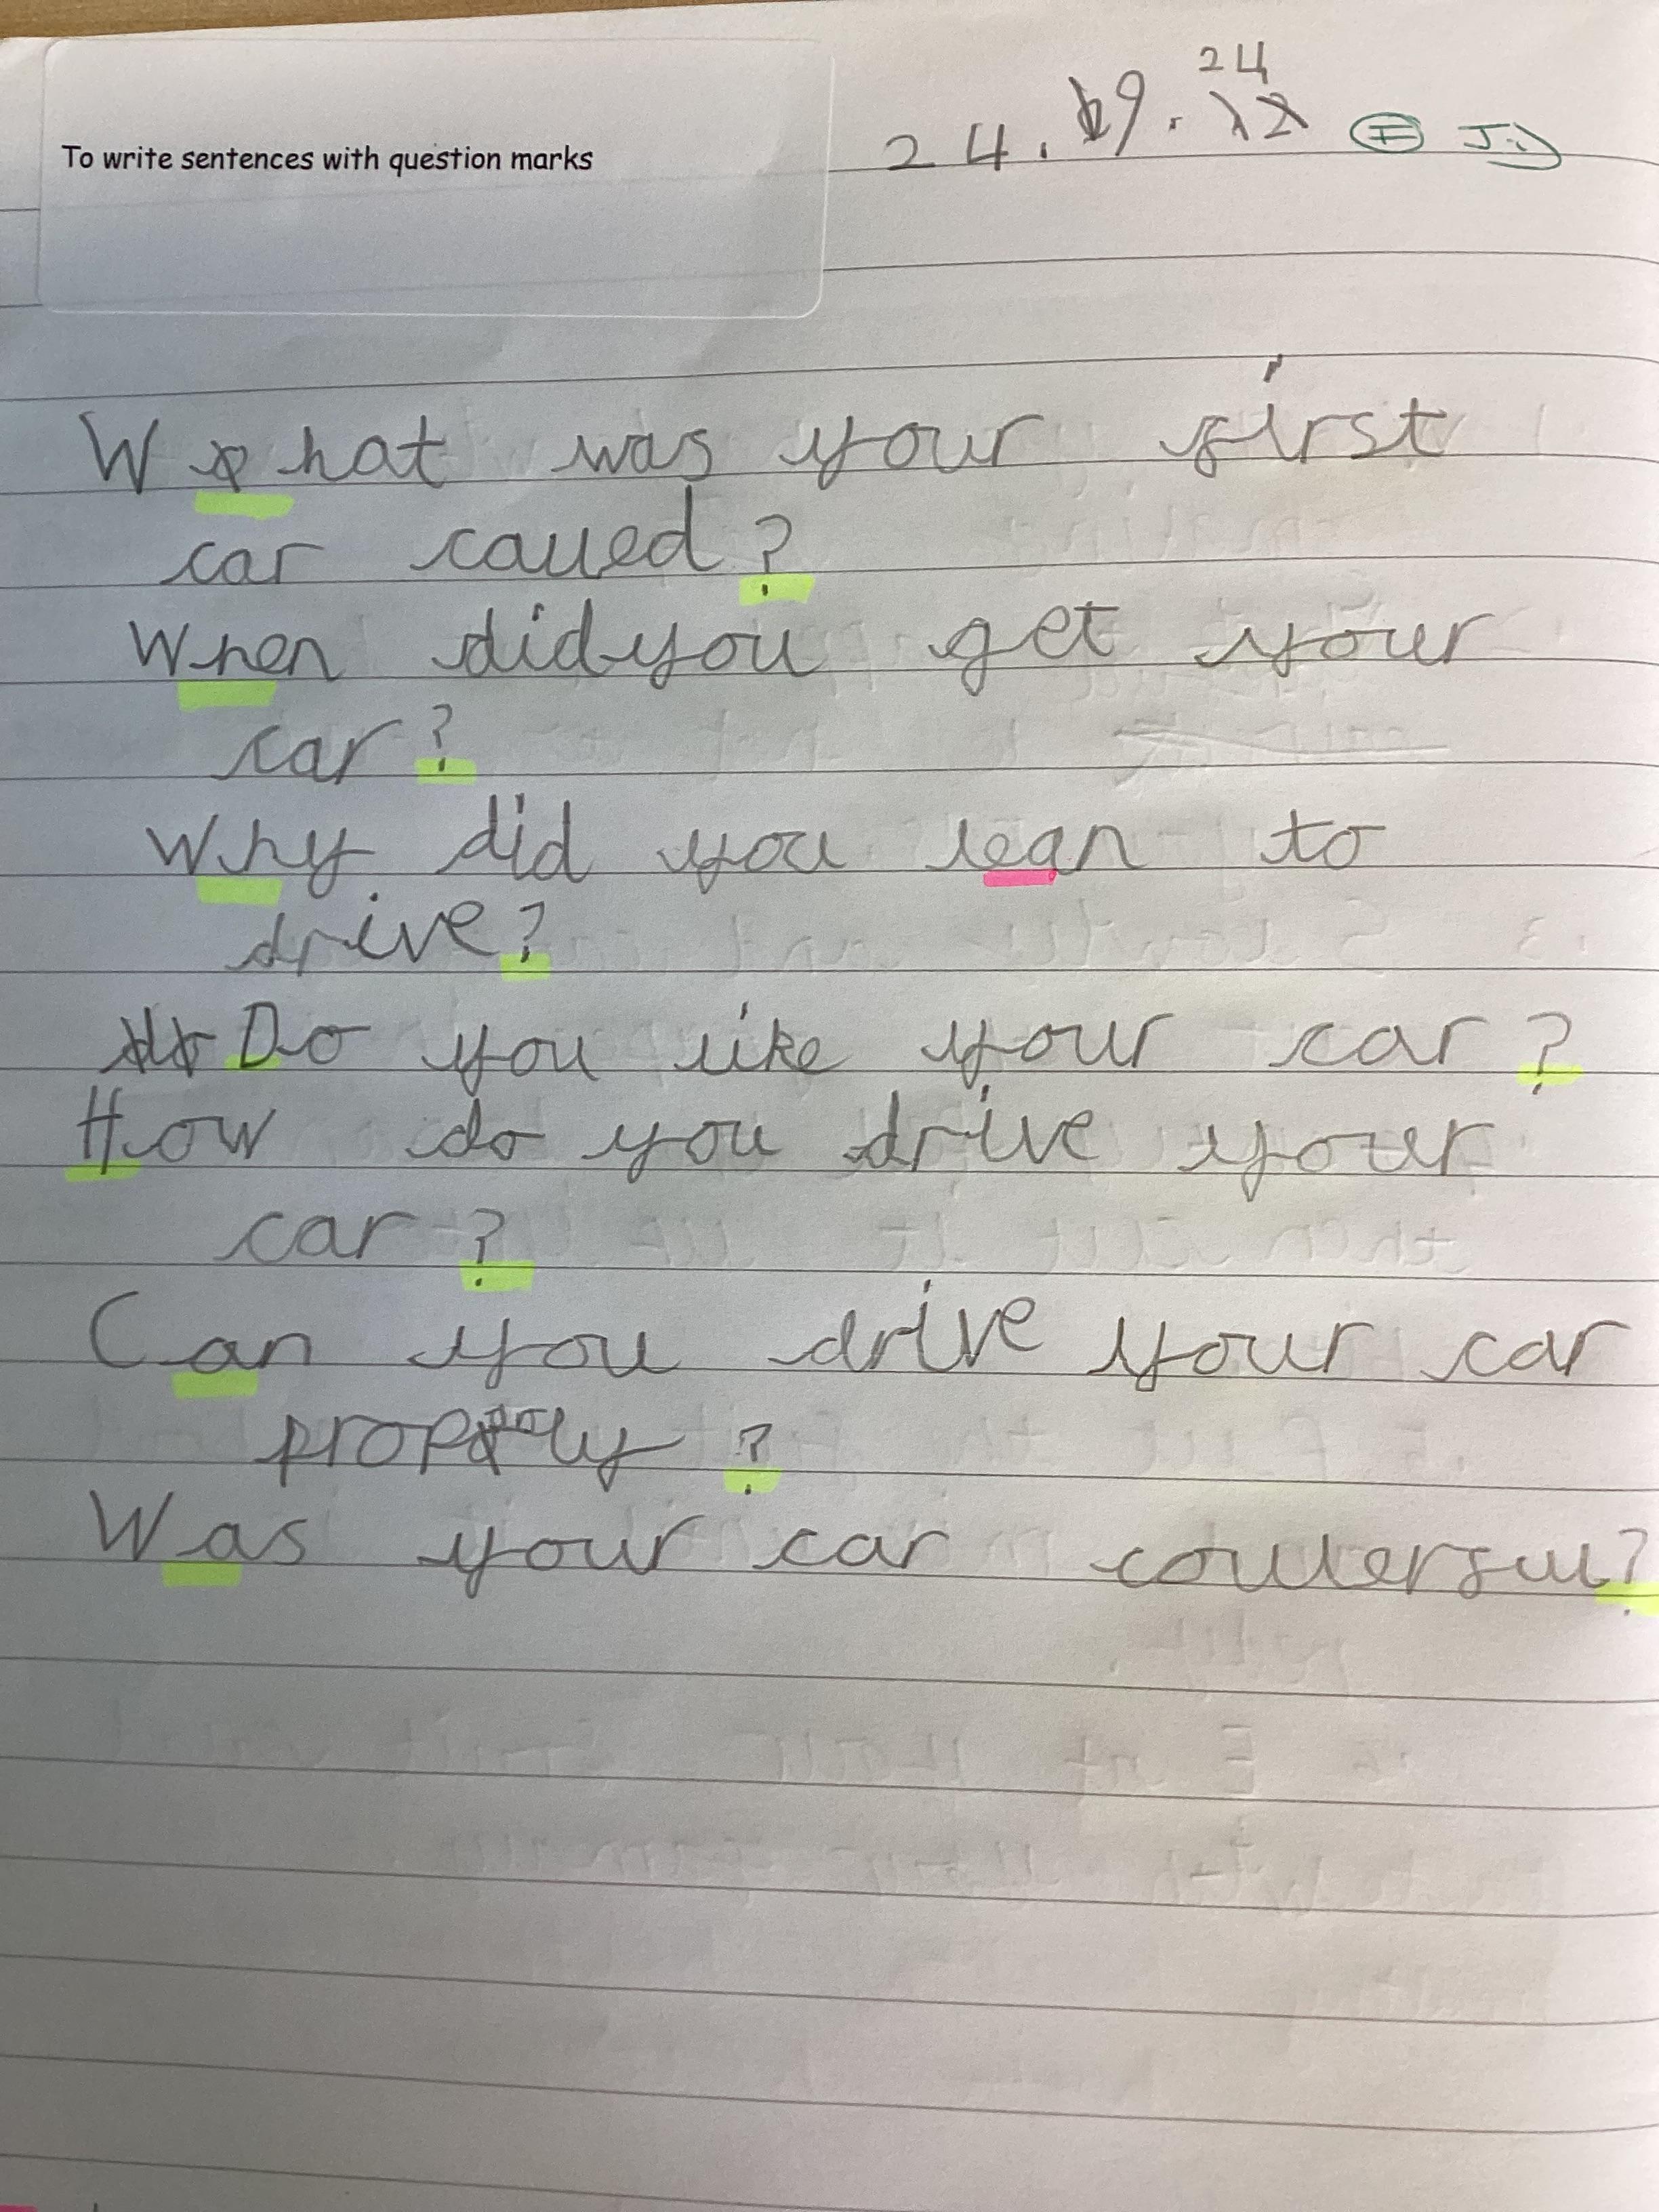 To write sentences with question marks
24.9.24
I J:)
What was your first
car called?
When did you get your
car?
Why did you lean to
drive?
Do you like your car?
How do you drive your
car?
Can you drive your car
proply?
Was your car coulerful?